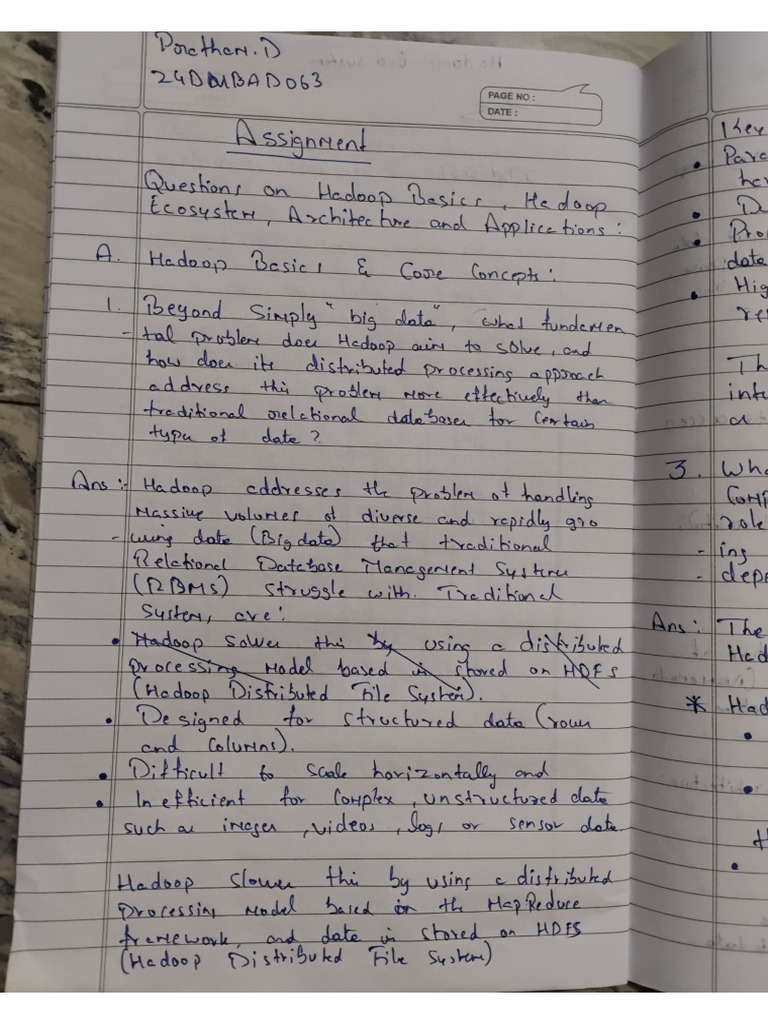 Prathan.D
24DMBAD063
PAGE NO :
DATE :
Assignment
Questions on Hadoop Basics, Hadoop
Ecosystem, Architecture and Applications:
A. Hadoop Basics & Core Concepts:
1. Beyond Simply "big data", what fundamen
- tal problem does Hadoop aim to solve, and
how does its distributed processing approach
address this problem more effectively than
traditional relational databases for Certain
types of data?
Ans: Hadoop addresses the problem of handling
massive volumes of diverse and rapidly gro
- wing data (Big data) that traditional
Relational Database Management System
(RBMS) struggle with. Traditional
System, are:
• Hadoop solves this by using a distributed
processing model based is stored on HDFS
(Hadoop Distributed File System).
• Designed for structured data (rows
and columns).
• Difficult to scale horizontally and
• Inefficient for Complex, unstructured data
such as images, videos, logs or sensor data
Hadoop slower this by using a distributed
processing model based on the MapReduce
framework, and data is stored on HDFS
(Hadoop Distributed File System)
Key
• Para
har
• Da
• Pro
data
• Hig
re
Th
inte
a
3. Wha
Comp
role
- ing
- depe
Ans: The
Had
* Had
•
•
•